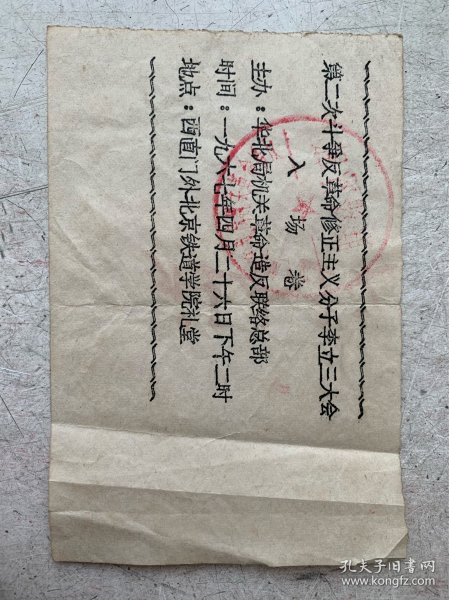 第二次斗争反革命修正主义分子李立三大会
入场券
主办：华北局机关革命造反联络总部
时间：一九六七年四月二十六日下午二时
地点：西直门外北京铁道学院礼堂
孔夫子旧书网
www.kongfz.com